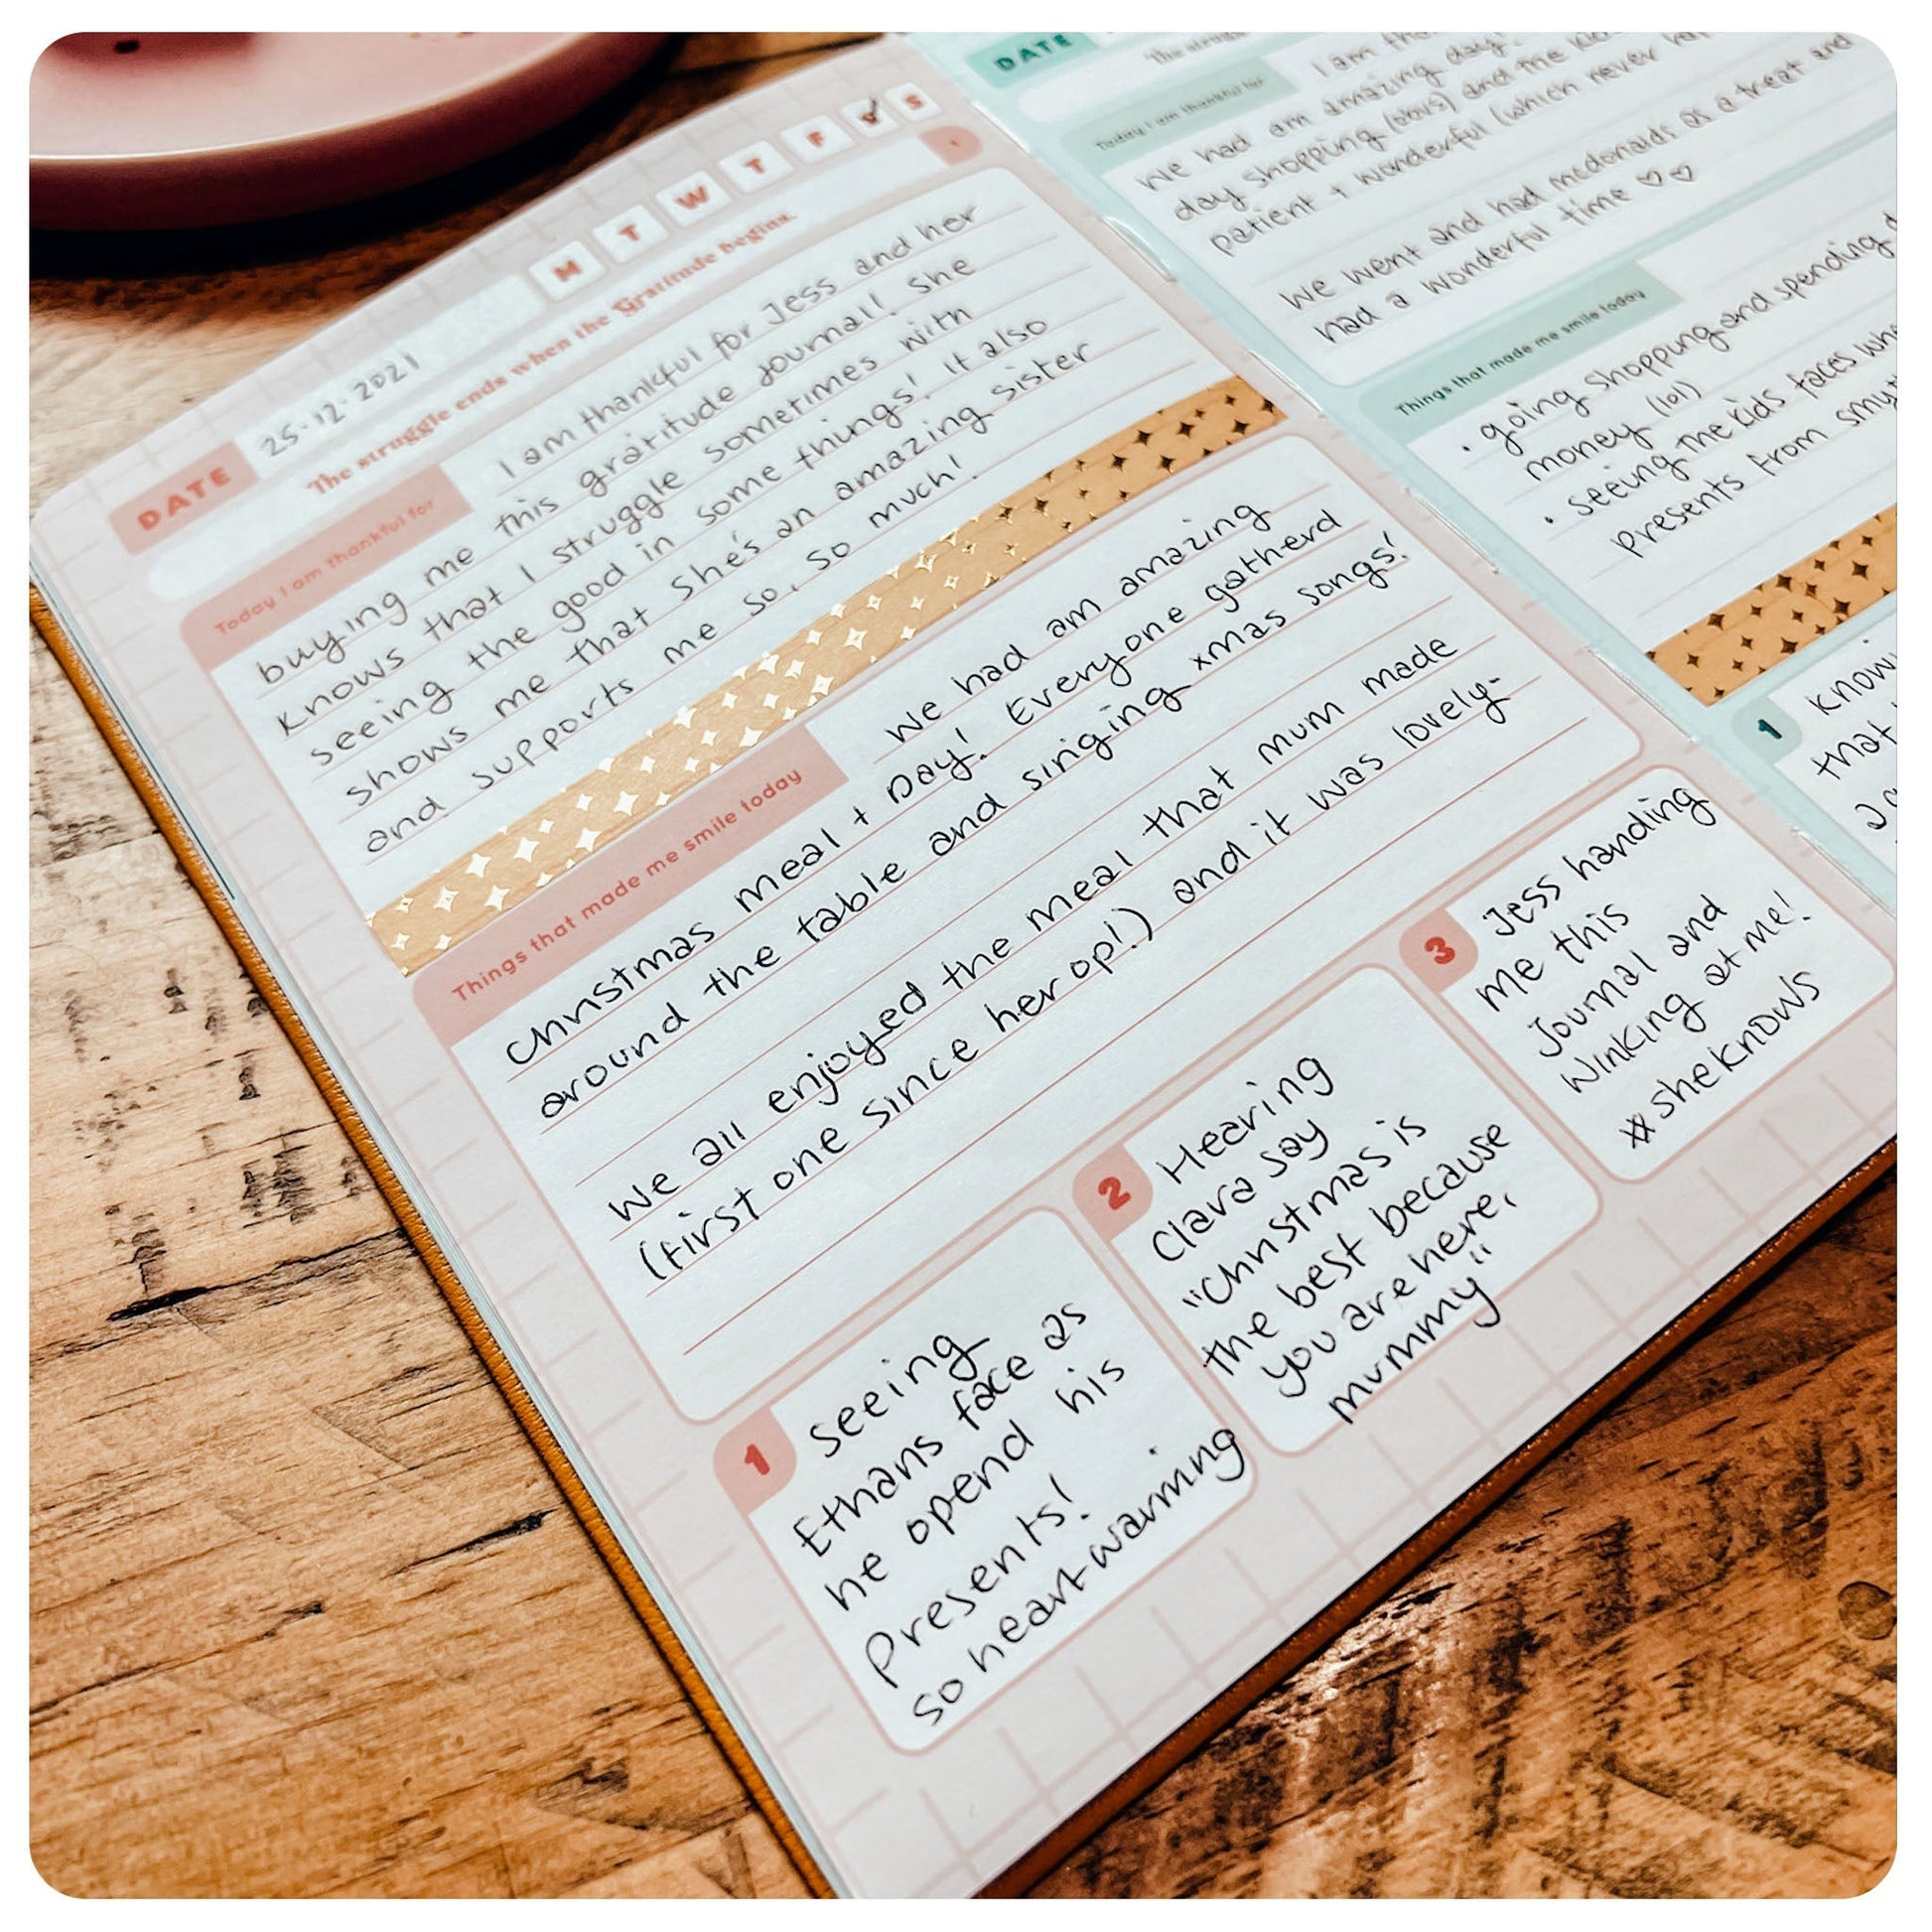 DATE 25-12-2021 M T W T F S S
The struggle ends when the Gratitude begins.
Today I am thankful for
I am thankful for Jess and her
buying me this gratitude Journal! She
knows that I struggle sometimes with
seeing the good in some things! It also
shows me that she's an amazing sister
and supports me so, so much!
Things that made me smile today
we had am amazing
Christmas meal + Day! Everyone gatherd
around the table and singing xmas songs!
We all enjoyed the meal that mum made
(first one since her op!) and it was lovely-
1
seeing
Ethans face as
he opend his
Presents!
so heart-warming
2
Hearing
Clara say
"Christmas is
the best because
you are here,
mummy"
3
Jess handing
me this
Journal and
winking at me!
#sheknows
DATE
The
Today I am thankful for
I am
we had am amazing day!
day shopping (obvs) and the
patient + wonderful (which never
We went and had mcdonalds as a treat and
had a wonderful time ♡♡
Things that made me smile today
• going shopping and spending
money (lol)
• seeing the kids faces
presents from
1
that